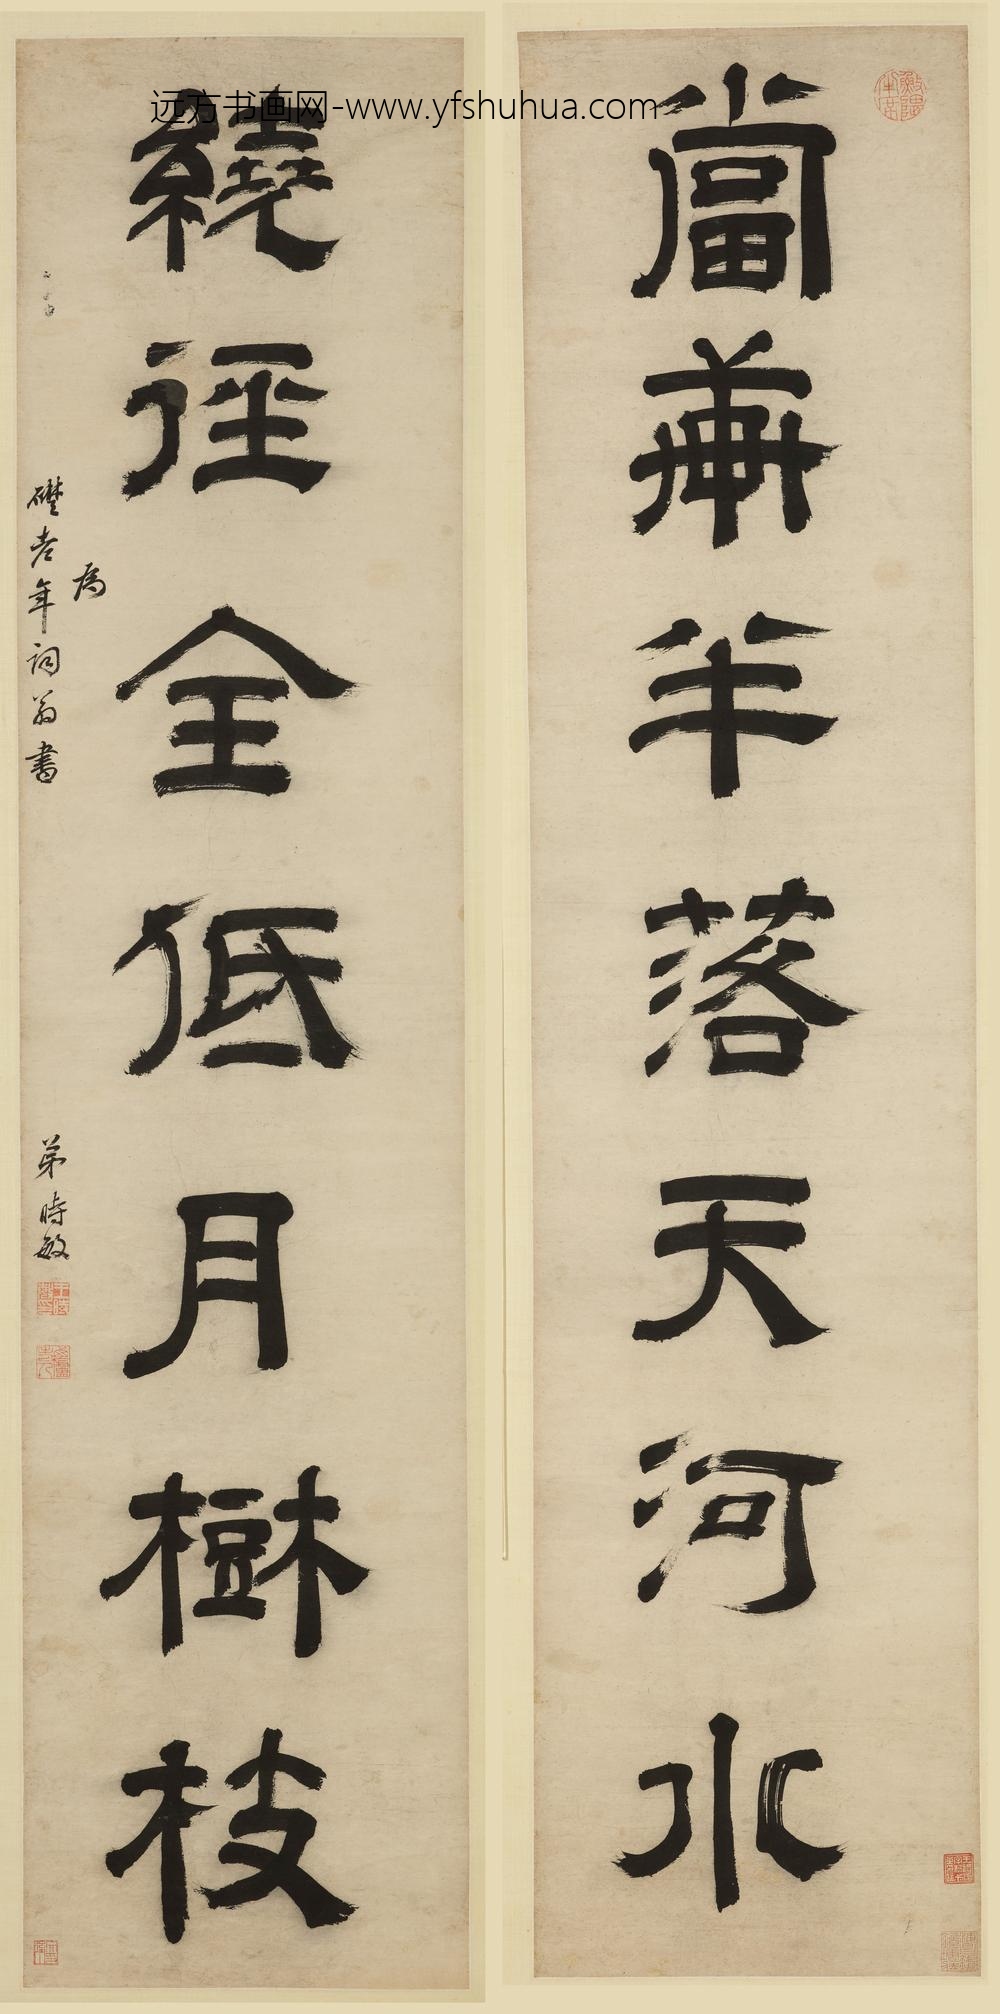 远方书画网-www.yfshuhua.com
當半落天河水
繞徑全低月樹枝
為
礎老年詞翁書
弟時敏